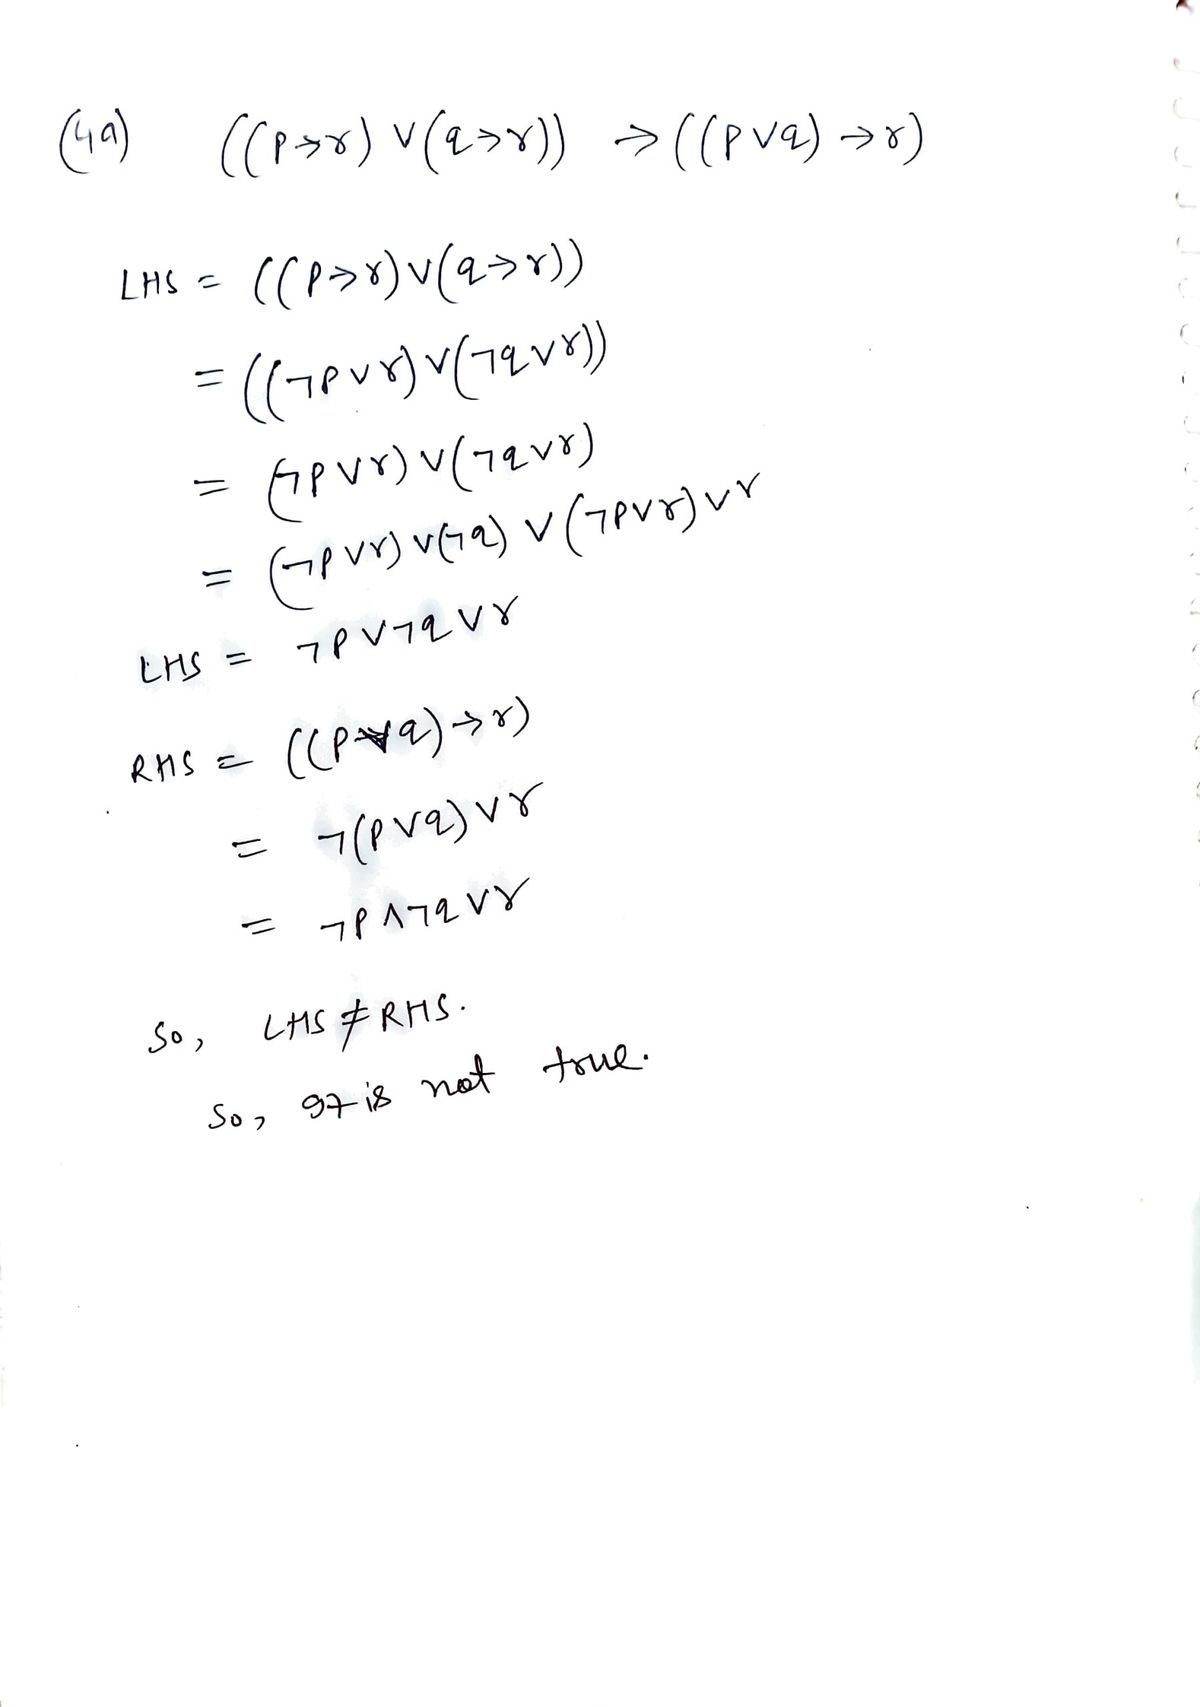 (4a) ((p→r) ∨ (q→r)) → ((p∨q) → r)
LHS = ((p→r) ∨ (q→r))
= ((¬p∨r) ∨ (¬q∨r))
= (¬p∨r) ∨ (¬q∨r)
= (¬p∨r) ∨ (¬q) ∨ (¬p∨r) ∨ r
LHS = ¬p∨¬q∨r
RHS = ((p∨q) → r)
= ¬(p∨q) ∨ r
= ¬p∧¬q∨r
So, LHS ≠ RHS.
So, It is not true.